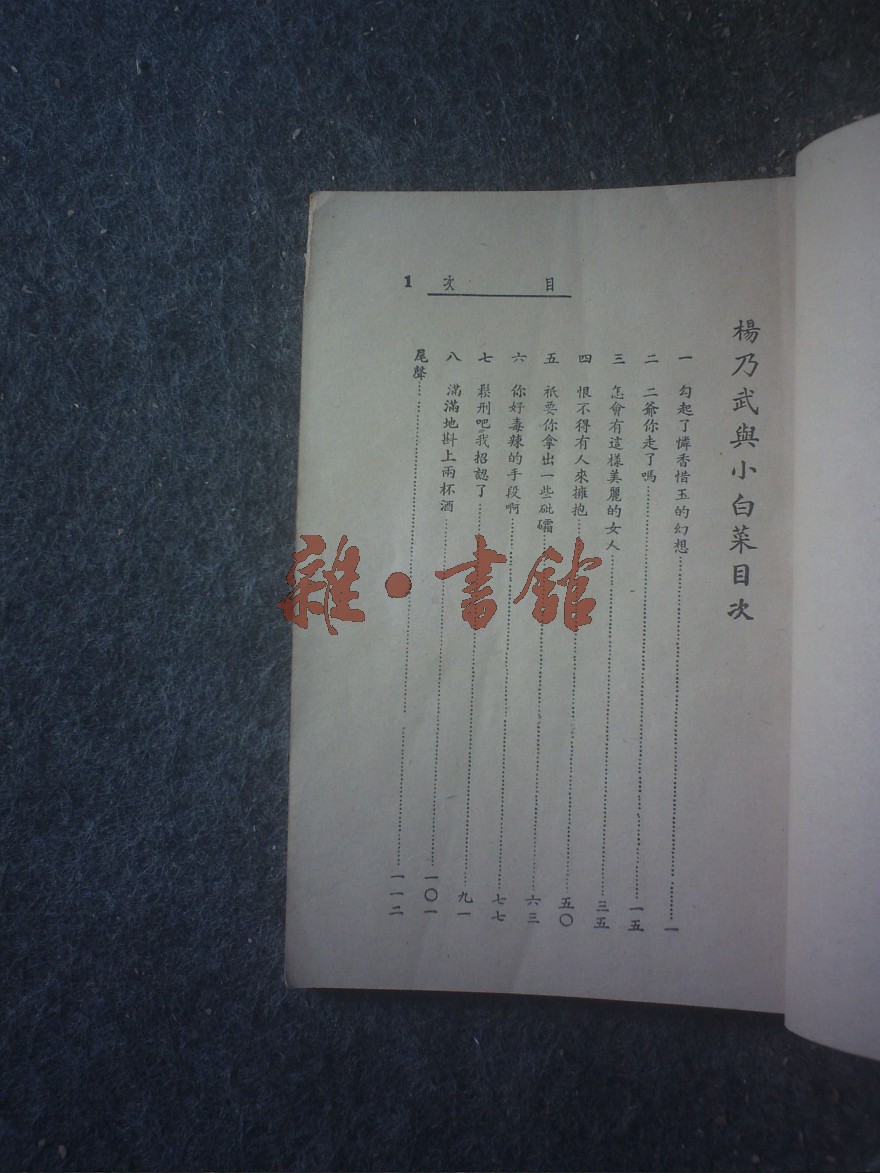 楊乃武與小白菜目次
目次 1
一 勾起了憐香惜玉的幻想……一
二 二爺你走了嗎……一五
三 怎會有這樣美麗的女人……三五
四 恨不得有人來擁抱……五〇
五 祇要你拿出一些砒礵……六三
六 你好毒辣的手段啊……七七
七 鬆刑吧我招認了……九一
八 滿滿地斟上兩杯酒……一〇一
尾聲……一一二
雜·書館